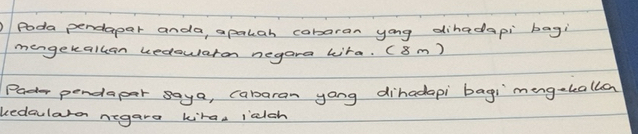 ) Pada pendapat anda, apakah cabaran yang dihadapi bagi
mengekalkan kedaulatan negara kita. (8m)
Pada pendapat saya, cabaran yang dihadapi bagi mengekalkan
kedaulatan negara kita, ialah